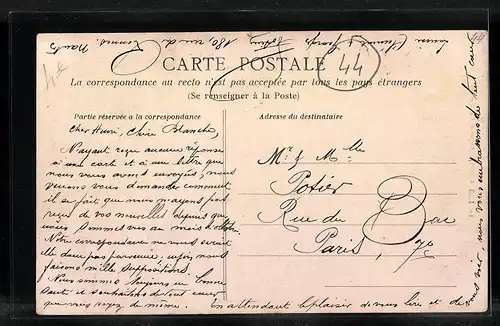 44
CARTE POSTALE
La correspondance au recto n'est pas acceptée par tous les pays étrangers
(Se renseigner à la Poste)
Partie réservée a la correspondance
Adresse du destinataire
Cher Henri, Chère Blanche,
N'ayant reçu aucune réponse
à une carte et à une lettre que
nous vous avons envoyés, nous
venons vous demander comment
il se fait que nous n'ayons pas
reçu de vos nouvelles depuis que
nous sommes au mois
Notre correspondance ne vous
elle donc pas parvenue, enfin nous
faisons mille suppositions.
Nous sommes toujours en bonne
santé et souhaitons de tout cœur
que vous soyez de même. En attendant le plaisir de vous lire et de
vous voir, nous vous embrassons de tout cœur
Mr & Melle
Potier
Rue du Bac
Paris, 7e
180 rue de Rennes. Nantes